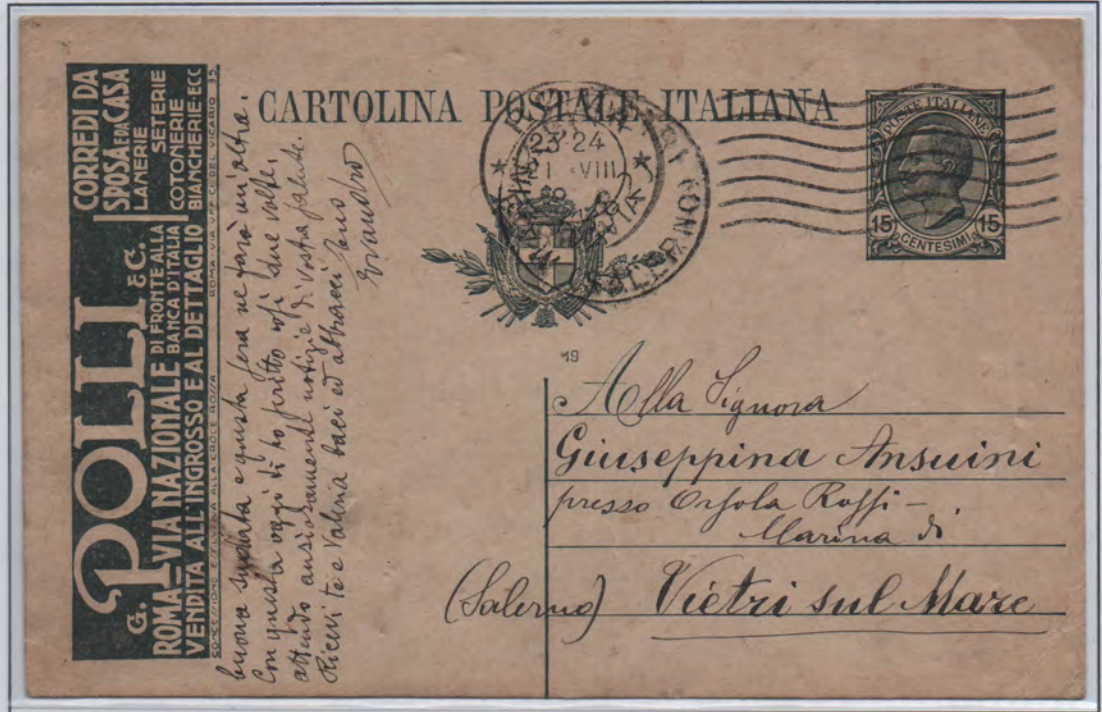 CORREDI DA
SPOSA E DA CASA
LANERIE
SETERIE
COTONERIE
BIANCHERIE·ECC
G. POLLI & C.
ROMA–VIA NAZIONALE DI FRONTE ALLA
BANCA D'ITALIA
VENDITA ALL'INGROSSO E AL DETTAGLIO
CONCESSIONE ESCLUSIVA ALLA CROCE ROSSA ROMA VIA UFF. CIO DEL VICARIO 35
buona sudata e questa sera ne farò un'altra.
Con questa oggi ti ho scritto così due volte.
attendo ansiosamente notizie di vostra salute.
Ricevi te e Valeria baci ed abbracci
CARTOLINA POSTALE ITALIANA
23-24
VIII
SALERNO
POSTE ITALIANE
15 15
CENTESIMI
19
Alla Signora
Giuseppina Ansuini
presso Orsola Raffi –
Marina di
(Salerno) Vietri sul Mare